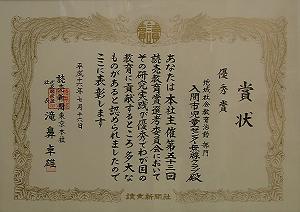 賞状
優秀賞
地域社会教育活動部門
入間市児童センター無線クラブ殿
あなたは本社主催第五十三回
読売教育賞選考委員会において
その研究実践が優秀でわが国の
教育に貢献するところ多大な
ものがあると認められましたので
ここに表彰します
平成十六年七月十六日
読売新聞東京本社
代表取締役社長 滝鼻卓雄
讀賣新聞社